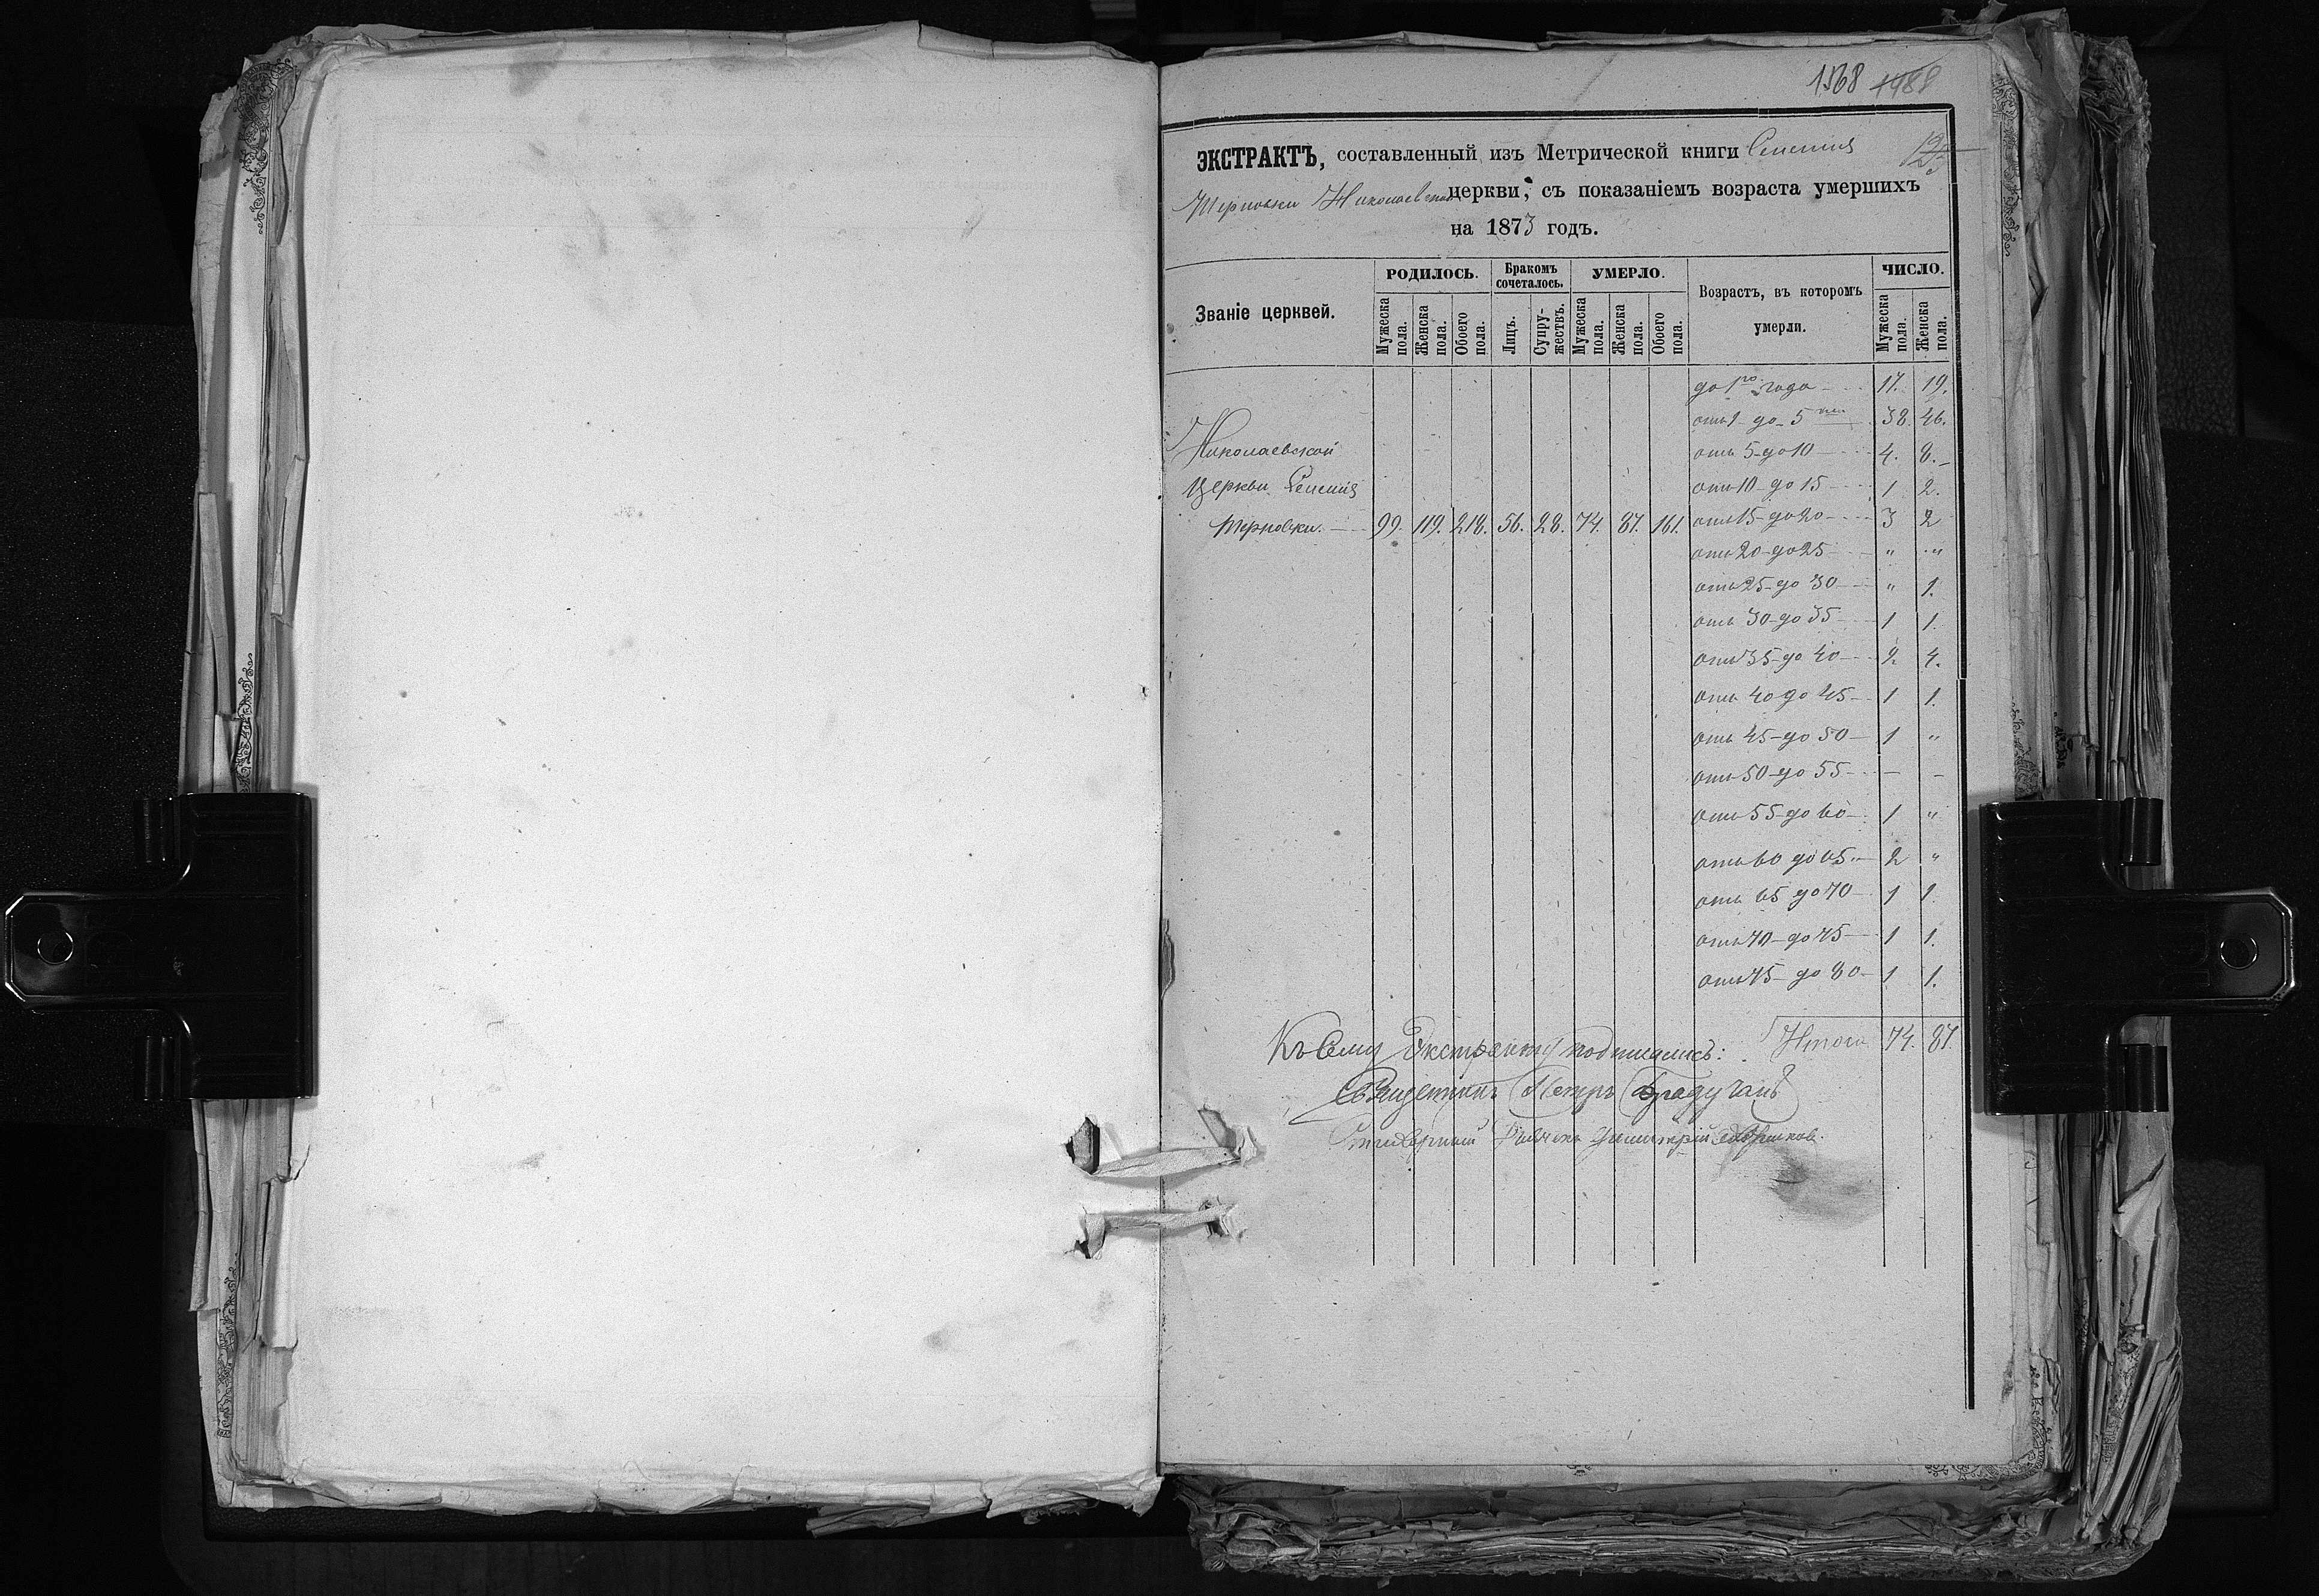 1568 1988
ЭКСТРАКТЪ, составленный изъ Метрической книги Селенія
Терновки Николаевской церкви, съ показаніемъ возраста умершихъ
на 1873 годъ.
Званіе церквей.
РОДИЛОСЬ.
Бракомъ сочеталось.
УМЕРЛО.
Возрастъ, въ которомъ умерли.
ЧИСЛО.
Мужеска пола. Женска пола. Обоего пола. Лицъ. Супружествъ. Мужеска пола. Женска пола. Обоего пола. Мужеска пола. Женска пола.
до 1го года 17. 19.
отъ 1 до 5 38. 46.
Николаевской отъ 5 до 10 4. 8.
Церкви Селенія отъ 10 до 15 1 2.
Терновки. 99. 119. 218. 56. 28. 74. 87. 161. отъ 15 до 20 3 2
отъ 20 до 25 " "
отъ 25 до 30 " 1.
отъ 30 до 35 1 1.
отъ 35 до 40 2. 4.
отъ 40 до 45 1 1.
отъ 45 до 50 1 "
отъ 50 до 55 - -
отъ 55 до 60 1 "
отъ 60 до 65 2 "
отъ 65 до 70 1 1.
отъ 70 до 75 1 1.
отъ 75 до 80 1 1.
Итого 74. 87
Къ Сему Экстракту подписались:
Священникъ Петръ